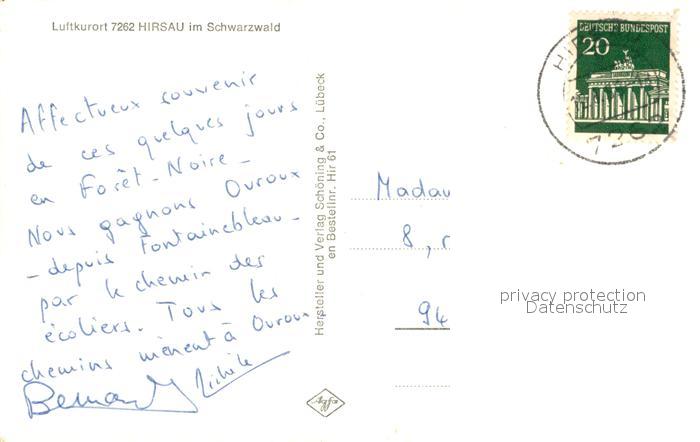 Luftkurort 7262 HIRSAU im Schwarzwald
Affectueux souvenir
de ces quelques jours
en Forêt-Noire -
Nous gagnons Ouroux
- depuis Fontainebleau -
par le chemin des
écoliers. Tous les
chemins mènent à Ouroux
Bernard Michèle
Hersteller und Verlag Schöning & Co., Lübeck
en Bestellnr. Hir 61
Agfa
DEUTSCHE BUNDESPOST
20
Madau
8, r
94
privacy protection
Datenschutz